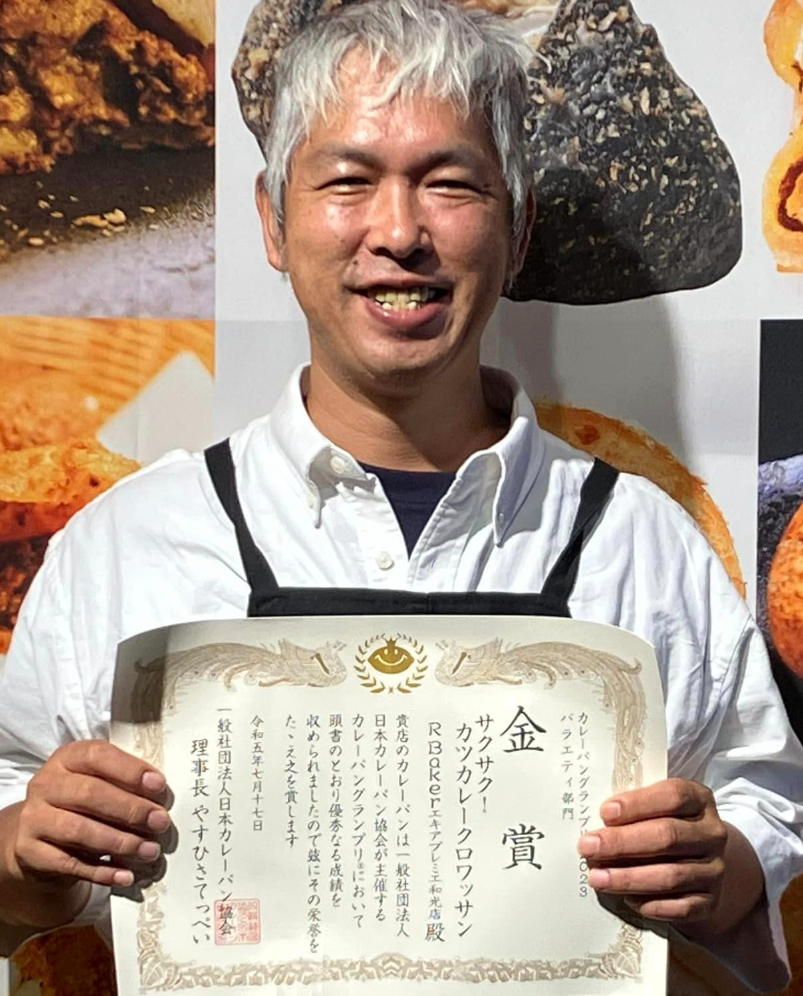 カレーパングランプリ2023
バラエティ部門
金賞
サクサク！
カツカレークロワッサン
RBakerエキアプレミエ和光店 殿
貴店のカレーパンは一般社団法人
日本カレーパン協会が主催する
カレーパングランプリ®において
頭書のとおり優秀なる成績を
収められましたので茲にその栄誉を
たゝえ之を賞します
令和五年七月十七日
一般社団法人日本カレーパン協会
理事長 やすひさてっぺい